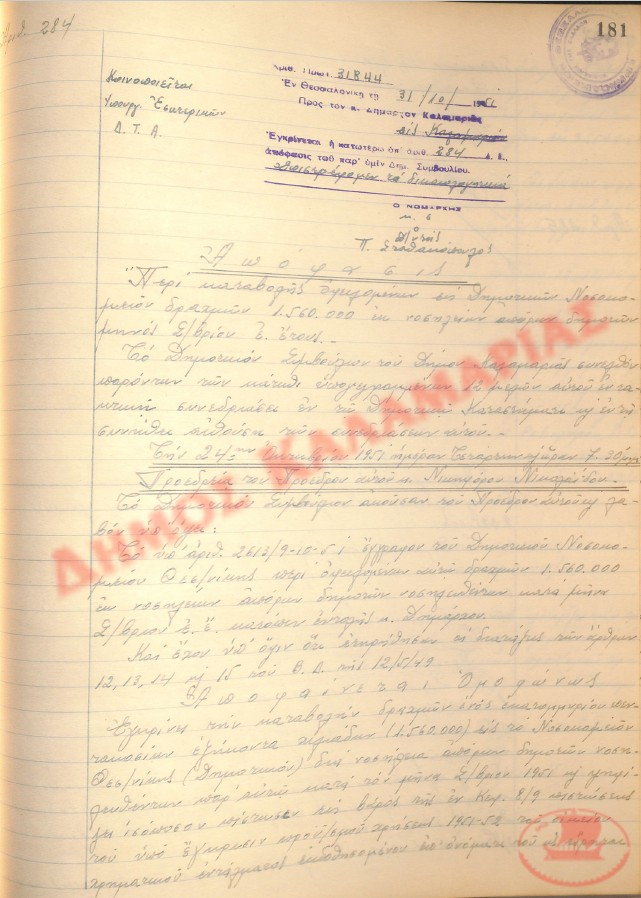 Ἀριθ. 284
181
Κοινοποιεῖται
Ὑπουργ. Ἐσωτερικῶν
Δ. Τ. Α.
Ἀριθ. Πρωτ. 31844
Ἐν Θεσσαλονίκῃ τῇ 31/10/1951
Πρὸς τὸν κ. Δήμαρχον Καλαμαριᾶς
εἰς Καλαμαριάν
Ἐγκρίνεται ἡ κατωτέρω ὑπ' ἀριθ. 284 ἀπόφασις τοῦ παρ' ὑμῖν Δημ. Συμβουλίου.
Ἐπιστρέφομεν τὰ δικαιολογητικά
Ο ΝΟΜΑΡΧΗΣ
Π.
Ἀπόφασις
Περὶ καταβολῆς ὀφειλομένων εἰς Δημοτικὸν Νοσοκο-
μεῖον δραχμῶν 1.560.000 ἐκ νοσηλείων ἀπόρων δημοτῶν
μηνὸς Σ/βρίου ἐ. ἔτους.-
Τὸ Δημοτικὸν Συμβούλιον τοῦ Δήμου Καλαμαριᾶς συνελθὸν
παρόντων τῶν κάτωθι ὑπογεγραμμένων 12 μελῶν αὐτοῦ ἐν τα-
κτικῇ συνεδριάσει ἐν τῷ Δημοτικῷ Καταστήματι κ ἐν τῇ
συνήθει αἰθούσῃ τῶν συνεδριάσεων αὐτοῦ.-
Τὴν 24ην Ὀκτωβρίου 1951 ἡμέραν Τετάρτην κ ὥραν 7.30 μ.μ.
Προεδρείᾳ τοῦ Προέδρου αὐτοῦ κ. Νικηφόρου Νικολαΐδου.-
Τὸ Δημοτικὸν Συμβούλιον ἀκοῦσαν τοῦ Προέδρου αὐτοῦ κ λα-
βὸν ὑπ' ὄψει:
Τὸ ὑπ' ἀριθ. 2613/9-10-51 ἔγγραφον τοῦ Δημοτικοῦ Νοσοκο-
μείου Θεσ/νίκης περὶ ὀφειλομένων αὐτῷ δραχμῶν 1.560.000
ἐκ νοσηλείων ἀπόρων δημοτῶν νοσηλευθέντων κατὰ μῆνα
Σ/βριον ἐ. ἔ. κατόπιν ἐντολῆς κ. Δημάρχου.
Καὶ ἔχον ὑπ' ὄψιν ὅτι ἐτηρήθησαν αἱ διατάξεις τῶν ἄρθρων
12, 13, 14 κ 15 τοῦ Β. Δ. τῆς 12/5/49
Ἀποφαίνεται Ὁμοφώνως
Ἐγκρίνει τὴν καταβολὴν δραχμῶν ἑνὸς ἑκατομμυρίου πεν-
τακοσίων ἑξήκοντα χιλιάδων (1.560.000) εἰς τὸ Νοσοκομεῖον
Θεσ/νίκης (Δημοτικὸν) διὰ νοσήλεια ἀπόρων δημοτῶν νοση-
λευθέντων παρ' αὐτῷ κατὰ τὸν μῆνα Σ/βριον 1951 κ ψηφί-
ζει ἰσόποσον πίστωσιν εἰς βάρος τῆς ἐν Κεφ. 8/9 πιστώσεως
τοῦ ὑπὸ ἔγκρισιν προϋ/σμοῦ χρήσεως 1951-52
χρηματικοῦ ἐντάλματος ἐκδοθησομένου ἐπ' ὀνόματι τοῦ
ΔΗΜΟΣ ΚΑΛΑΜΑΡΙΑΣ